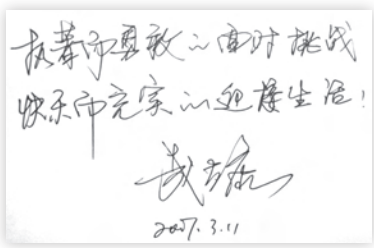 执着而勇敢的面对挑战
快乐而充实的迎接生活!
2007.3.11